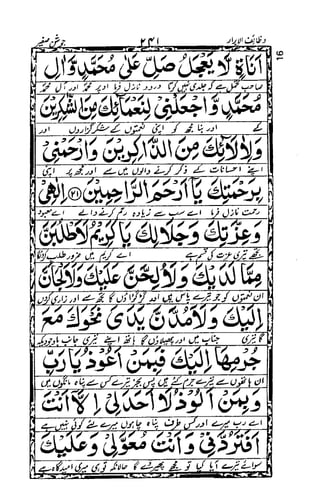 وظائف الابرار ۲۴۱ جوشن صغیر
16
اَنَاةٍ لَا يَعْجَلُ صَلِّ عَلٰى مُحَمَّدٍ وَّاٰلِ
صاحب تحمل ہے کہ جلدی نہیں کرتا درود نازل فرما اوپر محمدؐ اور آل محمدؐ
مُحَمَّدٍ وَّاجْعَلْنِيْ لِنَعْمَآئِكَ مِنَ الشّٰكِرِيْنَ
کے اور بنا مجھ کو اپنی نعمتوں کے شکرگزاروں اور
وَلِاٰلَآئِكَ مِنَ الذَّاكِرِيْنَ وَارْحَمْنِيْ
اپنے احسانات کے ذکر کرنے والوں میں سے اور مجھ پر اپنی
بِرَحْمَتِكَ يَا اَرْحَمَ الرَّاحِمِيْنَ (۲۱) اِلٰهِيْ
رحمت نازل فرما اے سب سے زیادہ رحم کرنے والے اے معبود
وَعِزَّتِكَ وَجَلَالِكَ يَا كَرِيْمُ لَاَطْلُبَنَّ
مجھے تیری عزت کی قسم ہے اے کریم میں ضرور طلب کروں گا
مِمَّا لَدَيْكَ وَلَاُلِحَّنَّ عَلَيْكَ وَلَاَلْجَاَنَّ
ان نعمتوں کو جو تیرے پاس ہیں اور گڑگڑاؤں گا تجھ سے اور زاری کروں
اِلَيْكَ وَلَاَمُدَّنَّ يَدِيْ نَحْوَكَ مَعَ
گا تیری جناب میں اور پھیلاؤں گا ہاتھ اپنے تیری جانب باوجودیکہ
جُرْمِهَا اِلَيْكَ فَبِمَنْ اَعُوْذُ يَا رَبِّ
ان ہاتھوں سے تیرے جرم کئے ہیں پس بجز تیرے کس سے پناہ مانگوں میں
وَبِمَنْ اَلُوْذُ لَا اَحَدَ لِيْ اِلَّا اَنْتَ
اے رب میرے اور کس طرف پناہ چاہوں میرے لئے کوئی نہیں ہے
اَفَتَرُدُّنِيْ وَاَنْتَ مُعَوَّلِيْ وَعَلَيْكَ
سوائے تیرے آیا کیا تو مجھے پھیرے گا حالانکہ تو ہی میری امیدگاہ ہے